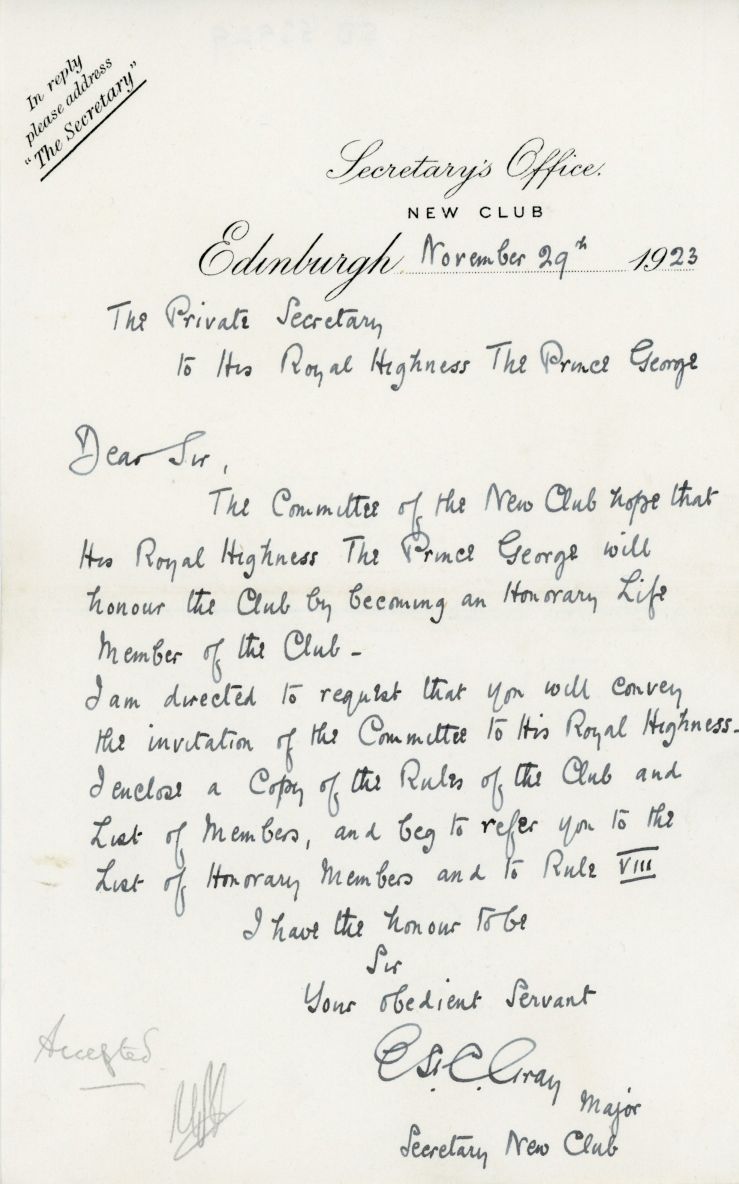 In reply
please address
"The Secretary"
Secretary's Office.
NEW CLUB
Edinburgh November 29th 1923
The Private Secretary
to His Royal Highness The Prince George
Dear Sir,
The Committee of the New Club hope that
His Royal Highness The Prince George will
honour the Club by becoming an Honorary Life
Member of the Club -
I am directed to request that you will convey
the invitation of the Committee to His Royal Highness.
I enclose a Copy of the Rules of the Club and
List of Members, and beg to refer you to the
List of Honorary Members and to Rule VIII
I have the honour to be
Sir
Your obedient Servant
E St. C. Gray Major
Secretary New Club
Accepted